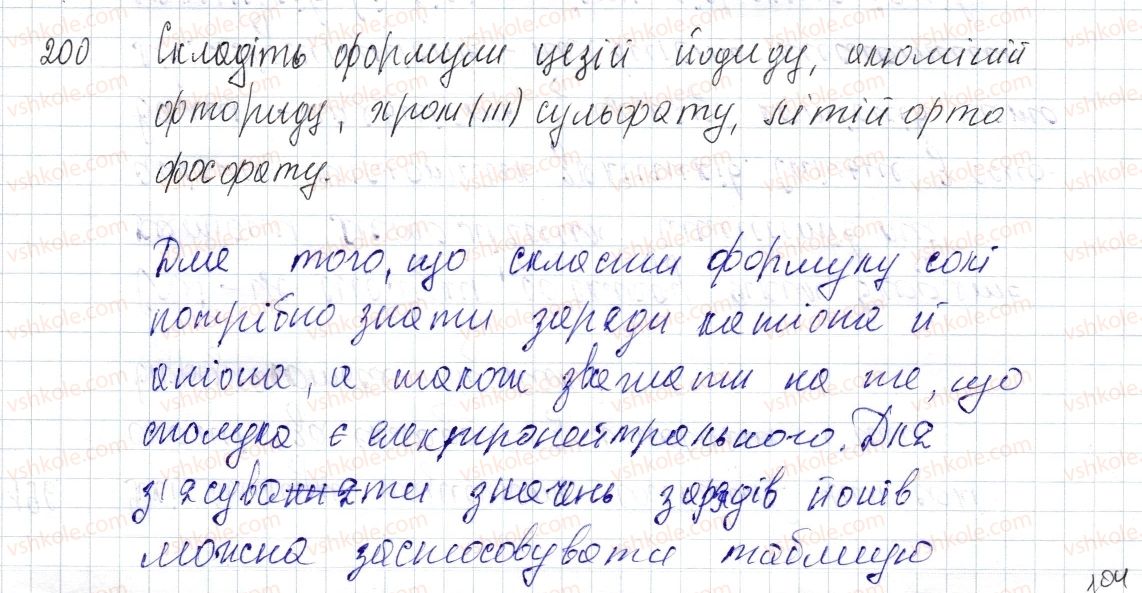 200 Складіть формули цезій йодиду, алюміній
фториду, хром (III) сульфату, літій орто
фосфату.
Для того, що скласти формулу солі
потрібно знати заряди катіона й
аніона, а також зважати на те, що
сполука є електронейтрального. Для
з'ясувати значень зарядів йонів
можна застосовувати таблицю
104